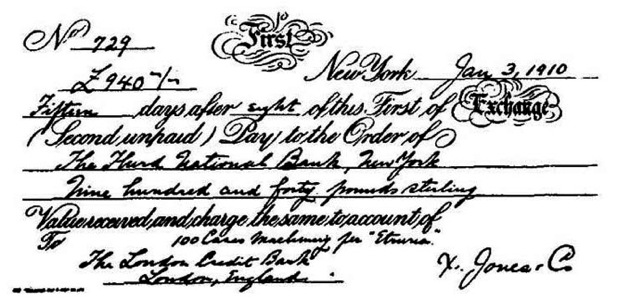 No 729
First
£940-/-
New York Jan 3, 1910
Fifteen days after sight of this First of Exchange
(Second unpaid) Pay to the Order of
The Third National Bank, New York
Nine hundred and forty pounds sterling
Value received, and charge the same to account of
To 100 Cases Machinery per "Etruria."
The London Credit Bank
London, England.
X. Jones & Co